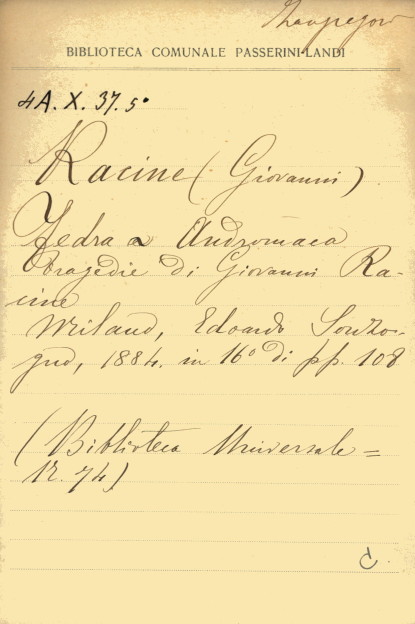 BIBLIOTECA COMUNALE PASSERINI-LANDI
4A. X. 37. 5°
Racine (Giovanni)
Fedra a Andromaca
Tragedie di Giovanni Ra-
cine
Milano, Edoardo Sonzo-
gno, 1884. in 16° di pp. 108
(Biblioteca Universale =
N. 74)
C.